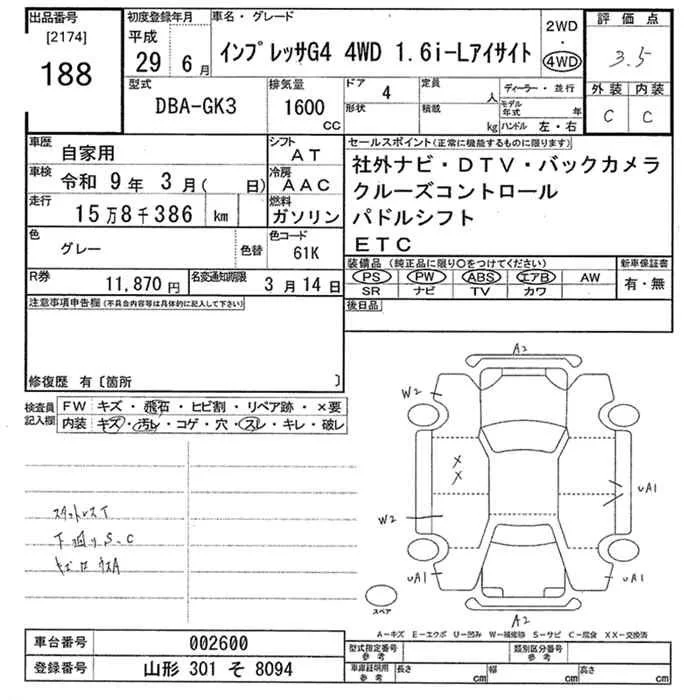 出品番号
[2174]
188
初度登録年月
平成
29年 6月
車名・グレード
インプレッサG4 4WD 1.6i-Lアイサイト
2WD
・
4WD
評価点
3.5
外装 内装
C C
型式
DBA-GK3
排気量
1600
CC
ドア 4
形状
定員 人
積載 kg
ディーラー・並行
モデル年式 年
ハンドル 左・右
車歴 自家用
車検 令和 9年 3月( 日)
走行 15万8千386 km
色 グレー 色替
シフト AT
冷房 AAC
燃料 ガソリン
色コード 61K
R券 11,870円
名変通知期限 3月14日
セールスポイント(正常に機能するものに限ります)
社外ナビ・DTV・バックカメラ
クルーズコントロール
パドルシフト
ETC
装備品 (純正品に限り○をつけてください)
PS PW ABS エアB AW
SR ナビ TV カワ
新車保証書
有・無
後日品
注意事項申告欄(不具合内容等は具体的に記入して下さい)
修復歴 有〔箇所 〕
検査員記入欄
FW キズ・飛石・ヒビ割・リペア跡・×要
内装 キズ・汚れ・コゲ・穴・スレ・キレ・破レ
スタットレスT
下廻りS、C
A2
W2
X
X
W2
UA1
UA1
UA1
A2
スペア
A-キズ E-エクボ U-凹み W-補修跡 S-サビ C-腐食 XX-交換済
車台番号 002600
登録番号 山形 301 そ 8094
型式指定番号参考
類別区分番号参考
車庫証明用参考 長さ cm 幅 cm 高さ cm